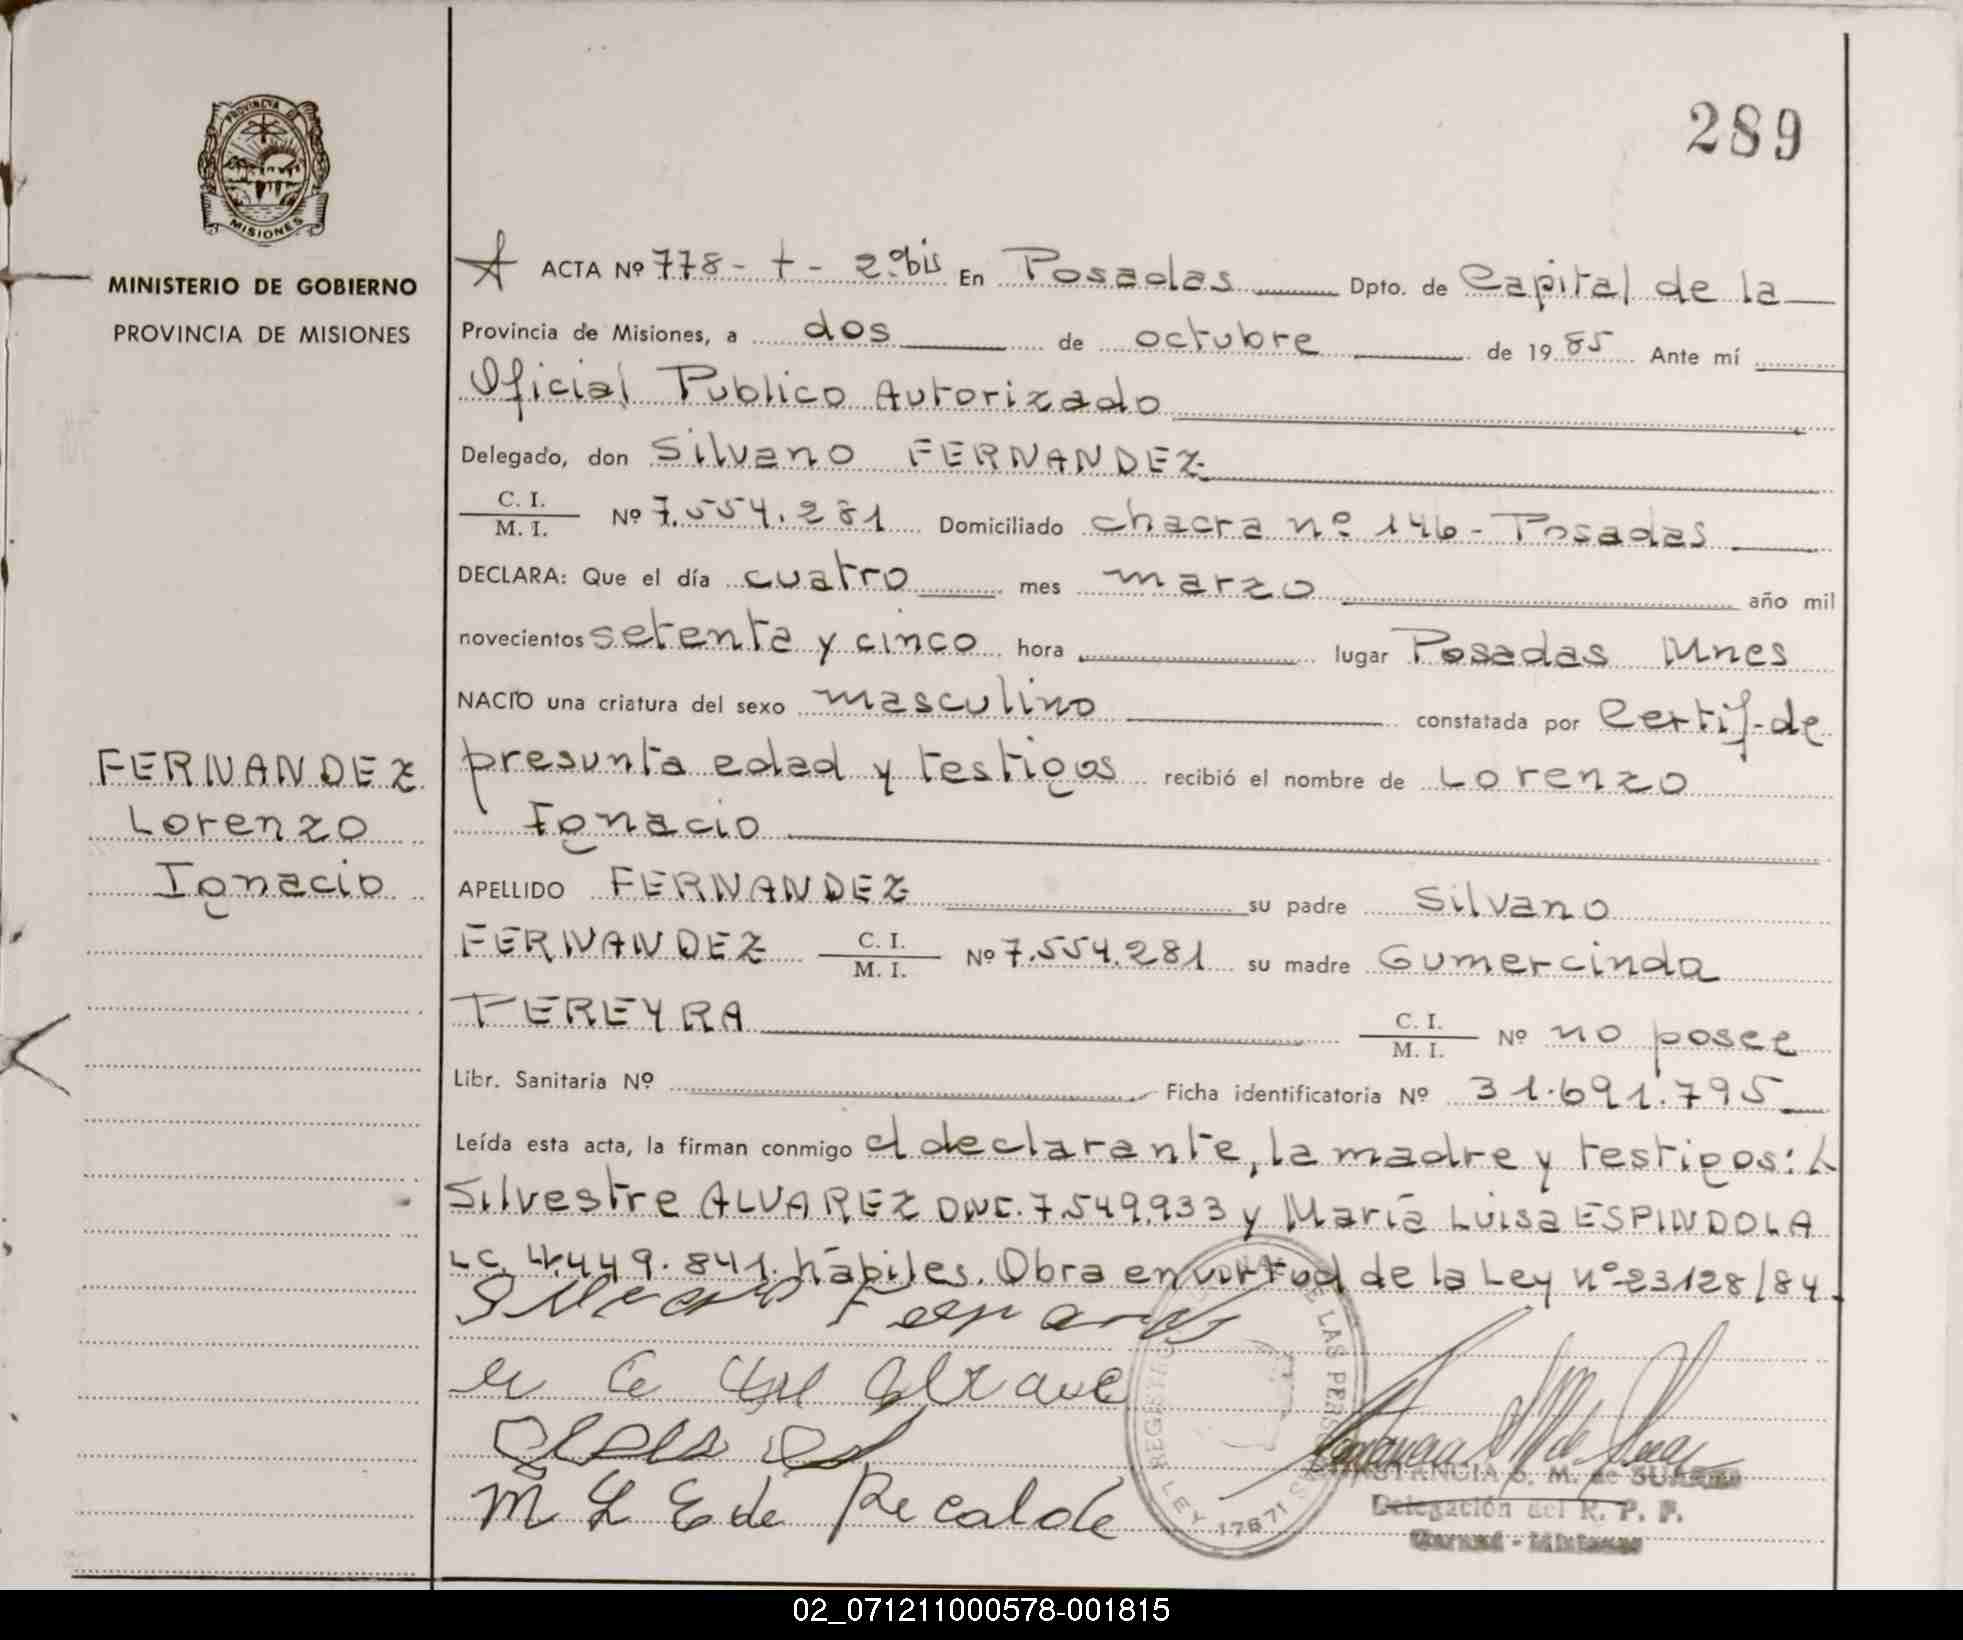 289
PROVINCIA DE
MISIONES
MINISTERIO DE GOBIERNO
PROVINCIA DE MISIONES
ACTA Nº 778 - t - 2º bis En Posadas Dpto. de Capital de la
Provincia de Misiones, a dos de octubre de 1985 Ante mí
Oficial Publico Autorizado
Delegado, don Silvano FERNANDEZ
C. I.
M. I. Nº 7.554.281 Domiciliado chacra nº 146 - Posadas
DECLARA: Que el día cuatro mes marzo año mil
novecientos setenta y cinco hora lugar Posadas Mnes
NACIO una criatura del sexo masculino constatada por Certif-de
presunta edad y testigos recibió el nombre de Lorenzo
Ignacio
FERNANDEZ
Lorenzo
Ignacio
APELLIDO FERNANDEZ su padre Silvano
FERNANDEZ C. I. M. I. Nº 7.554.281 su madre Gumercinda
PEREYRA C. I. M. I. Nº no posee
Libr. Sanitaria Nº Ficha identificatoria Nº 31.691.795
Leída esta acta, la firman conmigo el declarante, la madre y testigos:
Silvestre ALVAREZ 7.549.933 y María Luisa ESPINDOLA
LC. 4.449.841. hábiles. Obra en virtud de la Ley nº 23128/84.
M L E de Recalde
LAS PERS
LEY 17671
S. M. de
Delegación del R. P. P.
02_071211000578-001815